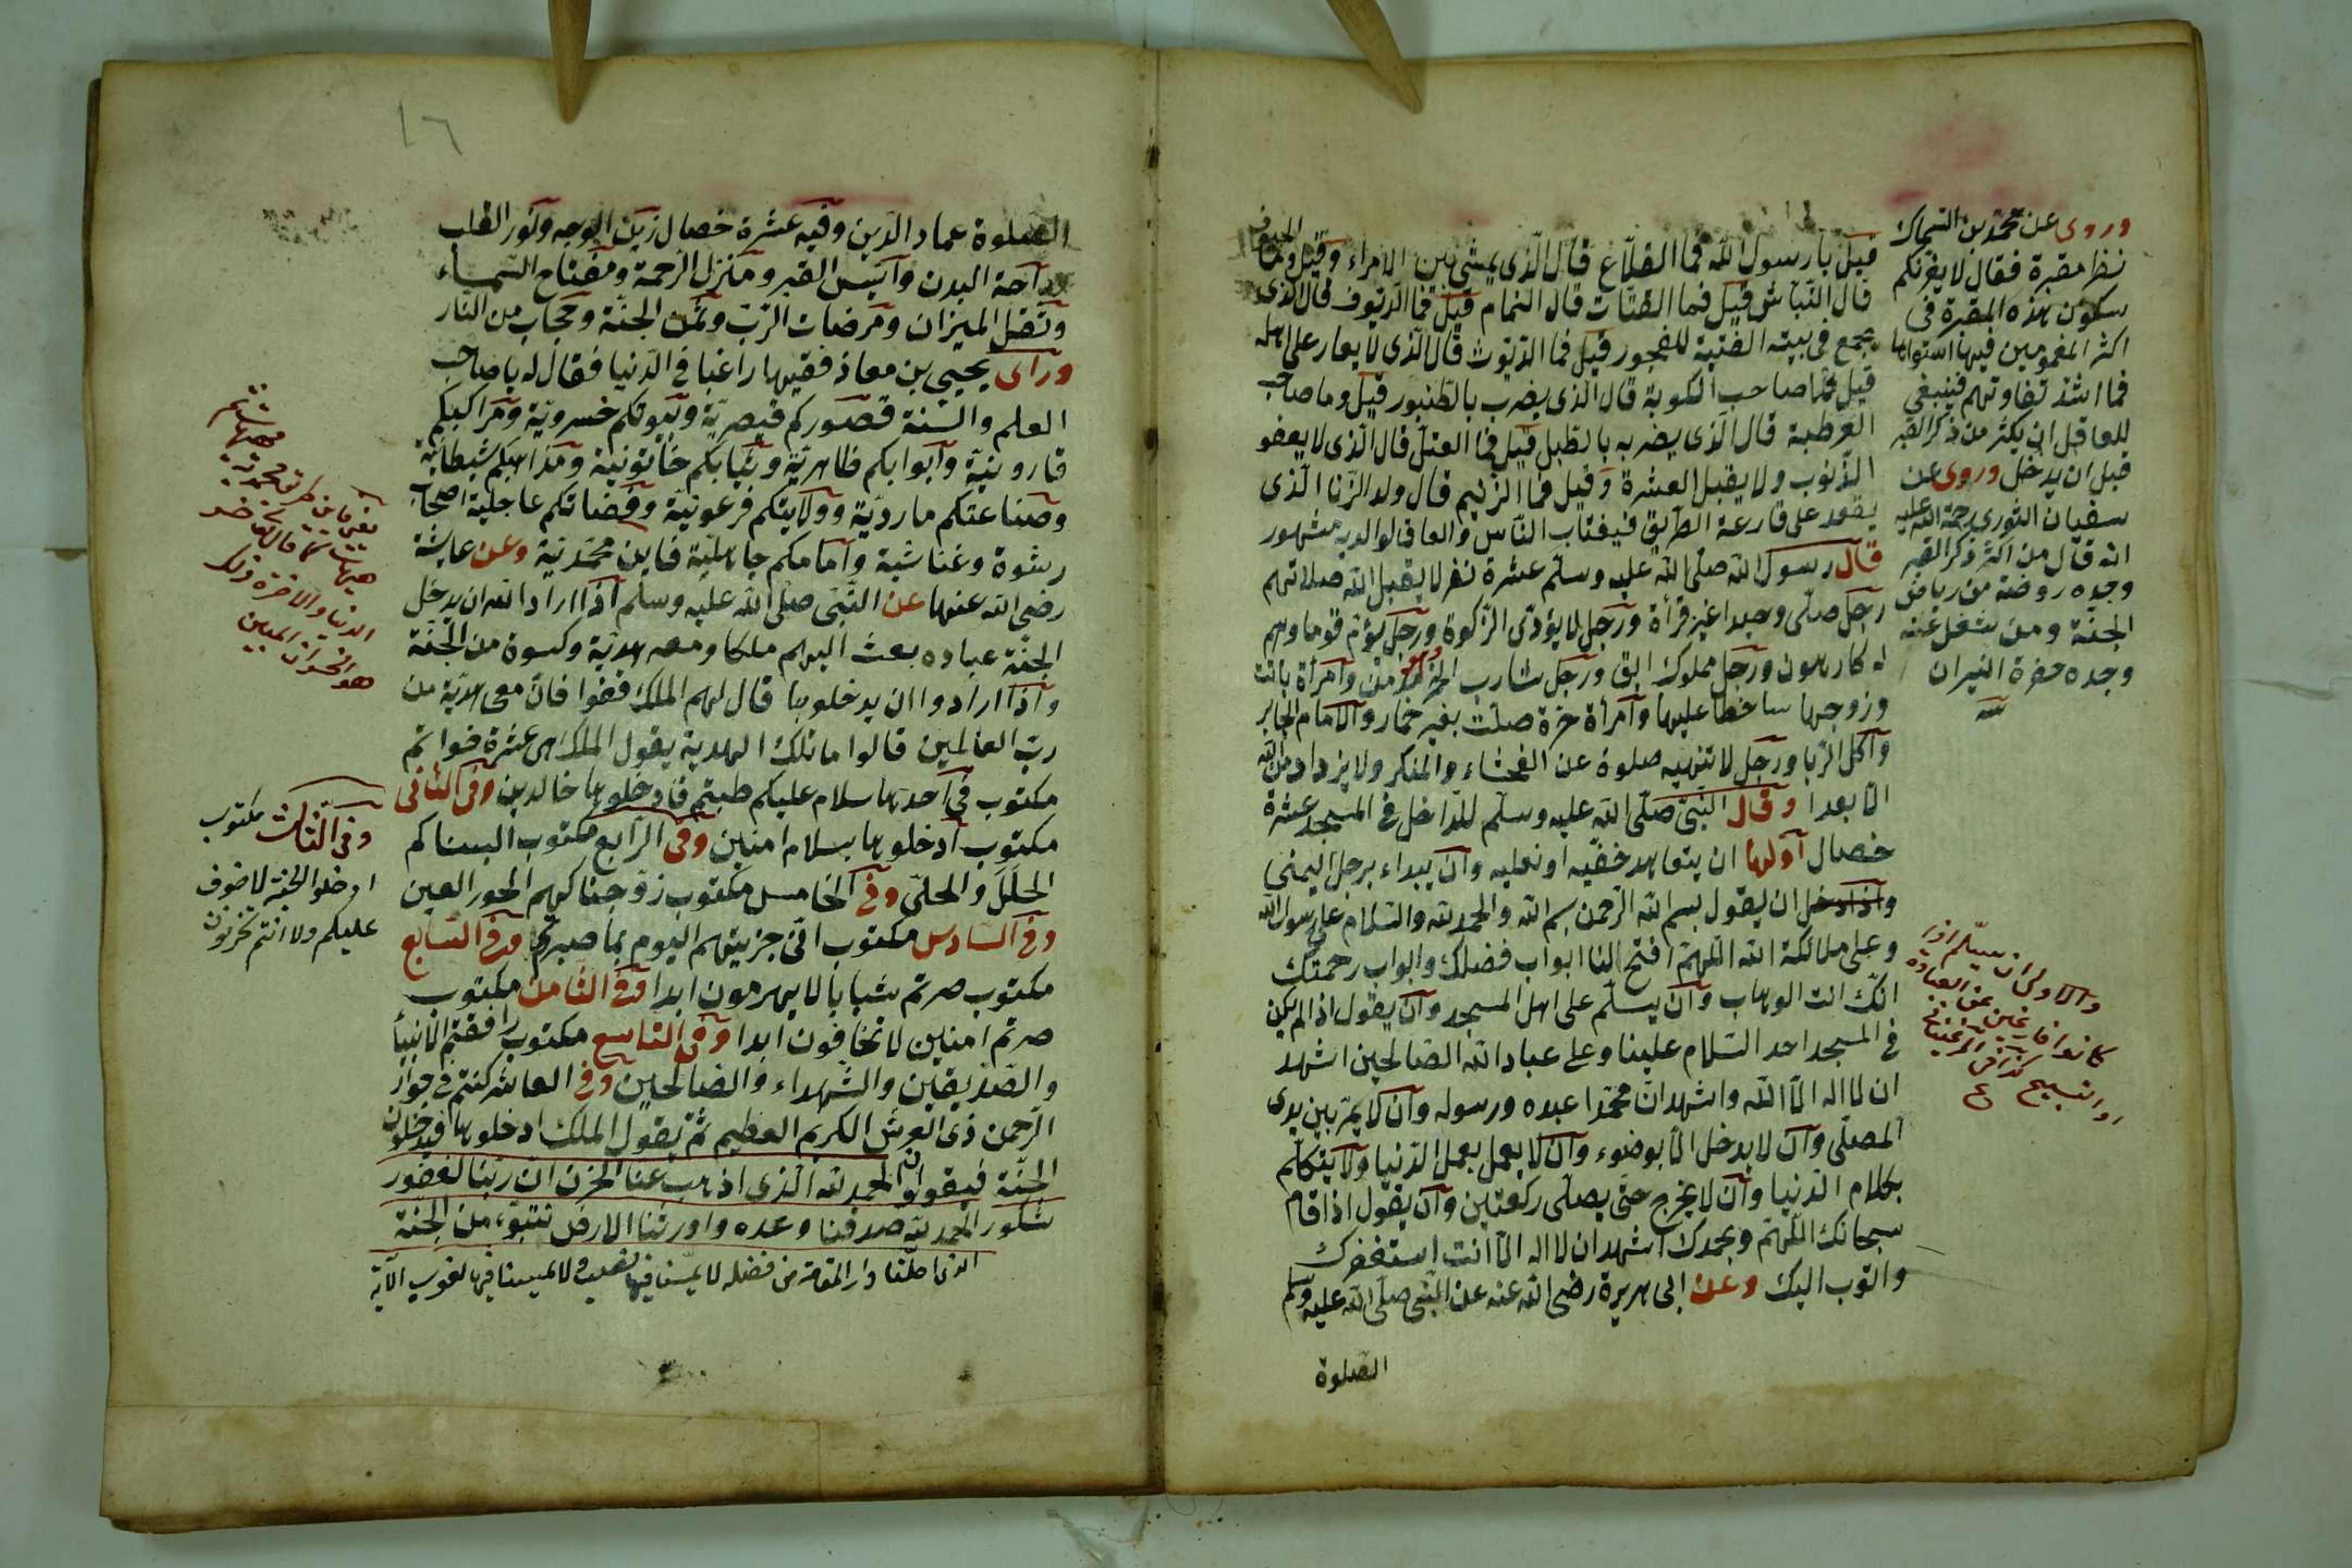 قيل يا رسول الله فما القلاع قال الذى يمشى بين الامراء وقيل وما الجيوف
قال النباش قيل فما القتات قال النمام قيل فما الديوف قال الذى
يجمع فى بيته الفتية للفجور قيل فما الديوث قال الذى لا يعار على اهله
قيل فما صاحب الكوبة قال الذى يضرب بالطنبور قيل وما صاحب
العرطبة قال الذى يضرب بالطبل قيل فما العتل قال الذى لا يعفو
الذنوب ولا يقبل العشرة وقيل فما الزنيم قال ولد الزنا الذى
يقعد على قارعة الطريق فيغتاب الناس والعاق لوالديه مشهور
قال رسول الله صلى الله عليه وسلم عشرة نفر لا يقبل الله صلاتهم
رجل صلى وحيدا غير قرأة ورجل لا يؤدى الزكوة ورجل يؤم قوما وهم
له كارهون ورجل مملوك ابق ورجل شارب الخمر مدمن وامرأة باتت
وزوجها ساخط عليها وامرأة حرة صلت بغير خمار والامام الجابر
وآكل الربا ورجل لا تنهيه صلوة عن الفحشاء والمنكر ولا يزداد من الله
الا بعدا وقال النبى صلى الله عليه وسلم للداخل فى المسجد عشرة
خصال اولها ان يتعاهد خفيه او نعليه وان يبداء برجل اليمنى
واذا دخل ان يقول بسم الله الرحمن بسم الله والحمد لله والسلام على رسول الله
وعلى ملائكة الله اللهم افتح لنا ابواب فضلك وابواب رحمتك
انك انت الوهاب وان يسلم على اهل المسجد وان يقول اذا لم يكن
فى المسجد احد السلام علينا وعلى عباد الله الصالحين اشهد
ان لا اله الا الله واشهد ان محمدا عبده ورسوله وان لا يمر بين يدى
المصلى وان لا يدخل الا بوضوء وان لا يعمل بعمل الدنيا ولا يتكلم
بكلام الدنيا وان لا يخرج حتى يصلى ركعتين وان يقول اذا قام
سبحانك اللهم وبحمدك اشهد ان لا اله الا انت استغفرك
واتوب اليك وعن ابى هريرة رضى الله عنه عن النبى صلى الله عليه وسلم
الصلوة
وروى عن محمد بن السماك
نظر مقبرة فقال لا يغرنكم
سكون هذه المقبرة فى
اكثر المغمومين فيها استواها
فما اشد تفاوتهم فينبغى
للعاقل ان يكثر من ذكر القبر
قبل ان يدخل وروى عن
سفيان الثورى رحمة الله عليه
انه قال من اكثر ذكر القبر
وجده روضة من رياض
الجنة ومن شغل عنه
وجده حفرة النيران
والاولى ان يسلم اذا
كانوا فارغين عن العبادة
او التسبيح كذا فى
١٦
الصلوة عماد الدين وفيه عشرة خصال زين الوجه ونور القلب
راحة البدن وانيس القبر ومنزل الرحمة ومفتاح السماء
وثقل الميزان ومرضات الرب وثمن الجنة وحجاب من النار
وراى يحيى بن معاذ فقيها راغبا فى الدنيا فقال له يا صاحب
العلم والسنة قصوركم قيصرية وبيوتكم خسروية ومراكبكم
قارونية وابوابكم ظاهرية وثيابكم خاتونية ومذاهبكم شيطانية
وصناعتكم ماردية وولايتكم فرعونية وقضاتكم عاجلية اصحاب
رشوة وغناشية وامامكم جاهلية فاين محمدية وعن عايشة
رضى الله عنها عن النبى صلى الله عليه وسلم اذا اراد الله ان يدخل
الجنة عباده بعث اليهم ملكا ومعه هدية وكسوة من الجنة
واذا ارادوا ان يدخلوها قال لهم الملك قفوا فان معى هدية من
رب العالمين قالوا ما تلك الهدية يقول الملك هى عشرة خواتم
مكتوب فى احدها سلام عليكم طبتم فادخلوها خالدين وفى الثانى
مكتوب ادخلوها بسلام امنين وفى الرابع مكتوب البسناكم
الحلل والحلى وفى الخامس مكتوب زوجناكهم الحور العين
وفى السادس مكتوب انى جزيتهم اليوم بما صبرتم وفى السابع
مكتوب صرتم شبابا لا يهرمون ابدا وفى الثامن مكتوب
صرتم امنين لا تخافون ابدا وفى التاسع مكتوب رافقتم الانبيأ
والصديقين والشهداء والصالحين وفى العاشر كنتم فى جوار
الرحمن ذى العرش الكريم العظيم ثم يقول الملك ادخلوها فيدخلون
الجنة فيقولون الحمد لله الذى اذهب عنا الحزن ان ربنا لغفور
شكور الحمد لله صدقنا وعده واورثنا الارض نتبوء من الجنة
الذى احلنا دار المقامة من فضله لا يمسنا فيها نصب ولا يمسنا فيها لغوب الآية
هيهات
الدنيا والاخرة ذلك
هو الخسران المبين
وفى الثالث مكتوب
ادخلوا الجنة لا خوف
عليكم ولا انتم تحزنون